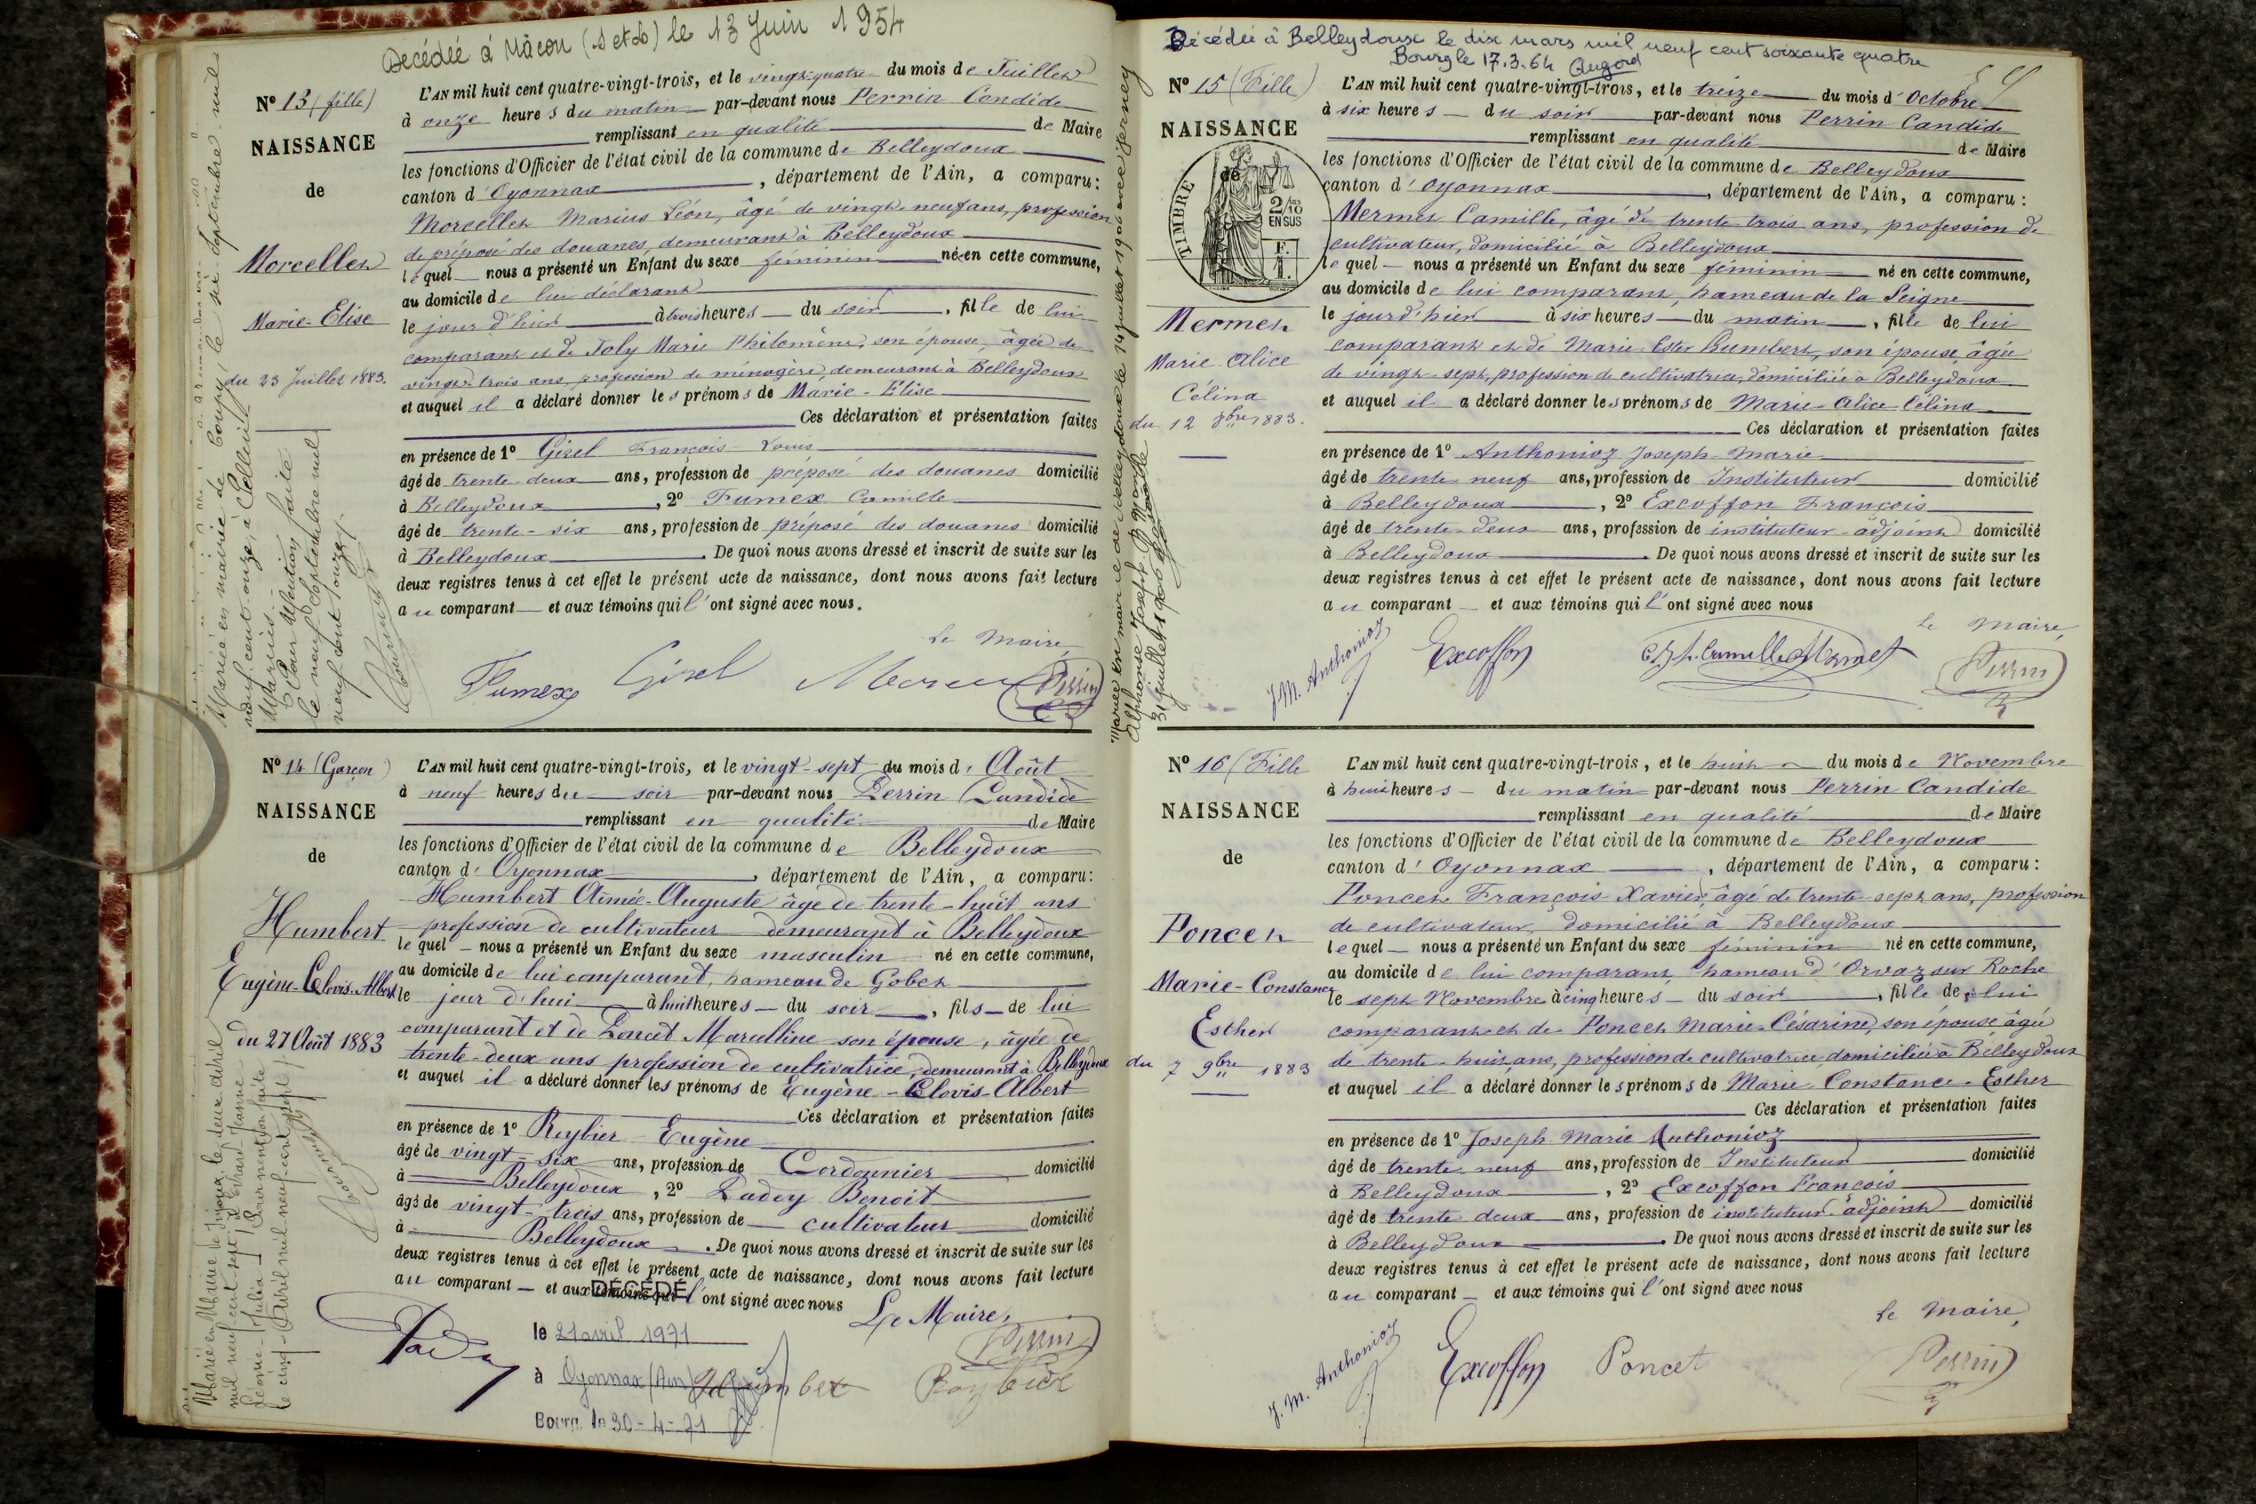 Decédée à Mâcon (S et L) le 13 Juin 1954
Nº 13 (fille)
NAISSANCE
de
Morcellet
Marie-Elise
du 23 Juillet 1883.
L'AN mil huit cent quatre-vingt-trois, et le vingt-quatre du mois de Juillet
à onze heures du matin par-devant nous Perrin Candide
remplissant en qualité de Maire
les fonctions d'Officier de l'état civil de la commune de Belleydoux
canton d'Oyonnax, département de l'Ain, a comparu:
Morcellet Marius Léon, âgé de vingt-neuf ans, profession
de préposé des douanes, demeurant à Belleydoux
lequel nous a présenté un Enfant du sexe féminin né en cette commune,
au domicile de lui déclarant
le jour d'hier à trois heures du soir, fille de lui
comparant et de Joly Marie Philomène, son épouse, âgée de
vingt-trois ans, profession de ménagère, demeurant à Belleydoux
et auquel il a déclaré donner les prénoms de Marie-Elise
Ces déclaration et présentation faites
en présence de 1º Girel François Louis
âgé de trente deux ans, profession de préposé des douanes domicilié
à Belleydoux, 2º Fumex Camille
âgé de trente-six ans, profession de préposé des douanes domicilié
à Belleydoux. De quoi nous avons dressé et inscrit de suite sur les
deux registres tenus à cet effet le présent acte de naissance, dont nous avons fait lecture
au comparant et aux témoins qui l'ont signé avec nous.
Le Maire,
Fumex Girel Perrin
Mariée en mairie de Coupy, le six Septembre mil
neuf cent onze, à
Mariès.
Pour Mention faite
le neuf Septembre mil
neuf cent onze.
Nº 14 (Garçon)
NAISSANCE
de
Humbert
Eugène-Clovis-Albert
du 27 Août 1883
L'AN mil huit cent quatre-vingt-trois, et le vingt-sept du mois d'Août
à neuf heures du soir par-devant nous Perrin Candide
remplissant en qualité de Maire
les fonctions d'Officier de l'état civil de la commune de Belleydoux
canton d'Oyonnax, département de l'Ain, a comparu:
Humbert Aimé-Auguste âgé de trente-huit ans
profession de cultivateur demeurant à Belleydoux
lequel nous a présenté un Enfant du sexe masculin né en cette commune,
au domicile de lui comparant, hameau de Gobet
le jour d'hui à huit heures du soir, fils de lui
comparant et de Poncet Marcelline son épouse, âgée de
trente-deux ans profession de cultivatrice, demeurant à Belleydoux
et auquel il a déclaré donner les prénoms de Eugène-Clovis-Albert
Ces déclaration et présentation faites
en présence de 1º Reybier Eugène
âgé de vingt-six ans, profession de Cordonnier domicilié
à Belleydoux, 2º Padey Benoit
âgé de vingt-trois ans, profession de cultivateur domicilié
à Belleydoux. De quoi nous avons dressé et inscrit de suite sur les
deux registres tenus à cet effet le présent acte de naissance, dont nous avons fait lecture
au comparant et aux témoins qui l'ont signé avec nous
DÉCÉDÉ
Le Maire,
le 21 avril 1971
à Oyonnax (Ain)
Bourg, le 30-4-71
Padey Humbert Perrin Reybier
Marié en Mairie de Mijoux le deux avril
mil neuf cent sept à Evrard Jeanne
Léonie Julia. Pour mention faite
le cinq Avril mil neuf cent sept
Décédée à Belleydoux le dix mars mil neuf cent soixante quatre
Bourg le 17.3.64
Nº 15 (Fille)
NAISSANCE
de
TIMBRE
2/10 EN SUS
F. 1.
Mermet
Marie Alice
Célina
du 12 8bre 1883.
L'AN mil huit cent quatre-vingt-trois, et le treize du mois d'Octobre
à six heures du soir par-devant nous Perrin Candide
remplissant en qualité de Maire
les fonctions d'Officier de l'état civil de la commune de Belleydoux
canton d'Oyonnax, département de l'Ain, a comparu:
Mermet Camille, âgé de trente-trois ans, profession de
cultivateur, domicilié à Belleydoux
lequel nous a présenté un Enfant du sexe féminin né en cette commune,
au domicile de lui comparant, hameau de la Seigne
le jour d'hier à six heures du matin, fille de lui
comparant et de Marie Ester Humbert, son épouse âgée
de vingt-sept, profession de cultivatrice, domiciliée à Belleydoux
et auquel il a déclaré donner les prénoms de Marie-Alice Célina
Ces déclaration et présentation faites
en présence de 1º Anthonioz Joseph-Marie
âgé de trente neuf ans, profession de Instituteur domicilié
à Belleydoux, 2º Excoffon François
âgé de trente-deux ans, profession de instituteur-adjoint domicilié
à Belleydoux. De quoi nous avons dressé et inscrit de suite sur les
deux registres tenus à cet effet le présent acte de naissance, dont nous avons fait lecture
au comparant et aux témoins qui l'ont signé avec nous
Le Maire,
J. M. Anthonioz Excoffon Camille Mermet Perrin
Mariée en mairie de Belleydoux le 14 juillet 1906 avec Perney
Alphonse Joseph.
31 juillet 1906
Nº 16 (Fille
NAISSANCE
de
Poncet
Marie-Constance
Esther
du 7 9bre 1883
L'AN mil huit cent quatre-vingt-trois, et le huit du mois de Novembre
à huit heures du matin par-devant nous Perrin Candide
remplissant en qualité de Maire
les fonctions d'Officier de l'état civil de la commune de Belleydoux
canton d'Oyonnax, département de l'Ain, a comparu:
Poncet François Xavier, âgé de trente-sept ans, profession
de cultivateur, domicilié à Belleydoux
lequel nous a présenté un Enfant du sexe féminin né en cette commune,
au domicile de lui comparant, hameau d'Orvaz sur Roche
le sept Novembre à cinq heures du soir, fille de lui
comparant et de Poncet Marie-Césarine, son épouse âgée
de trente-huit ans, profession de cultivatrice, domiciliée à Belleydoux
et auquel il a déclaré donner les prénoms de Marie-Constance-Esther
Ces déclaration et présentation faites
en présence de 1º Joseph Marie Anthonioz
âgé de trente-neuf ans, profession de Instituteur domicilié
à Belleydoux, 2º Excoffon François
âgé de trente deux ans, profession de instituteur adjoint domicilié
à Belleydoux. De quoi nous avons dressé et inscrit de suite sur les
deux registres tenus à cet effet le présent acte de naissance, dont nous avons fait lecture
au comparant et aux témoins qui l'ont signé avec nous
Le Maire,
J. M. Anthonioz Excoffon Poncet Perrin